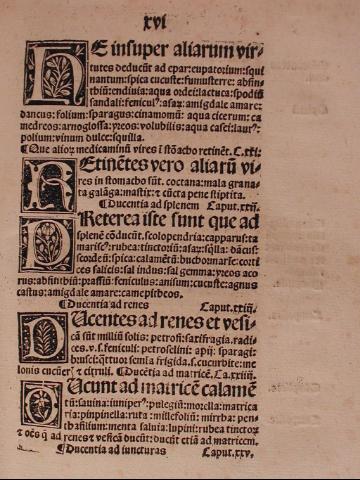 xvi
E insuper aliarum vir⸗
tutes deducũt ad epar: eupatorium: squi
nantum: spica cuculte: fumusterre: absin
thiũ: endiuia: aqua ordei: lactuca: spodiũ
sandali: feniculꝰ: asaꝝ: amigdale amare:
daucus: folium: sparagus: cinamomũ: aqua cicerum: ca
medreos: arnoglossa: yreos: volubilis: aqua casei: laurꝰ:
polium: vinum dulce: squilla.
Que alioꝝ medicaminũ vires ĩ stõacho retinẽt. C. xxi.
Etinẽtes vero aliarũ vi⸗
res in stomacho sũt. coctana: mala grana⸗
ta galãga: mastix: ⁊ cũcta pene stiptica.
Ducentia ad splenem Caput. xxii.
Reterea iste sunt que ad
splenẽ cõducũt. scolopendria: capparus: ta
marisc⁹: rubea: tinctoriũ: asaꝝ: sqlla: daucus
scordeũ: spica: calamẽtũ: buchormarie: corti
ces salicis: sal indus: sal gemma: yreos aco
rus: absinthiũ: prassiũ: feniculus: anisum: cucuste: agnus
castus: amigdale amare: camepitheos.
Ducentia ad renes Caput. xxiij.
Ucentes ad renes et vesi⸗
cã sũt milliũ solis: petrosili: saxifraga: radi⸗
ces. v. s. feniculi: petroselini: apij: sparagi:
bruscĩ: qttuor semĩa frigida. s. cucurbite: me
lonis cucũerꝭ ⁊ citruli. Ducẽtia ad matricẽ. Ca. xxiiij.
Ucunt ad matricẽ calamẽ
tũ: sauina: iuniperꝰ: pulegiũ: morella: matrica
ria: pinpinella: ruta: millefoliũ: mirrba: pen
thafilium: menta saluia: lupini: rubea tinctoꝝ
⁊ oẽs q̃ ad renes ⁊ vesicã ducũt: ducũt etiã ad matricem.
Ducentia ad iuncturas Caput. xxv.